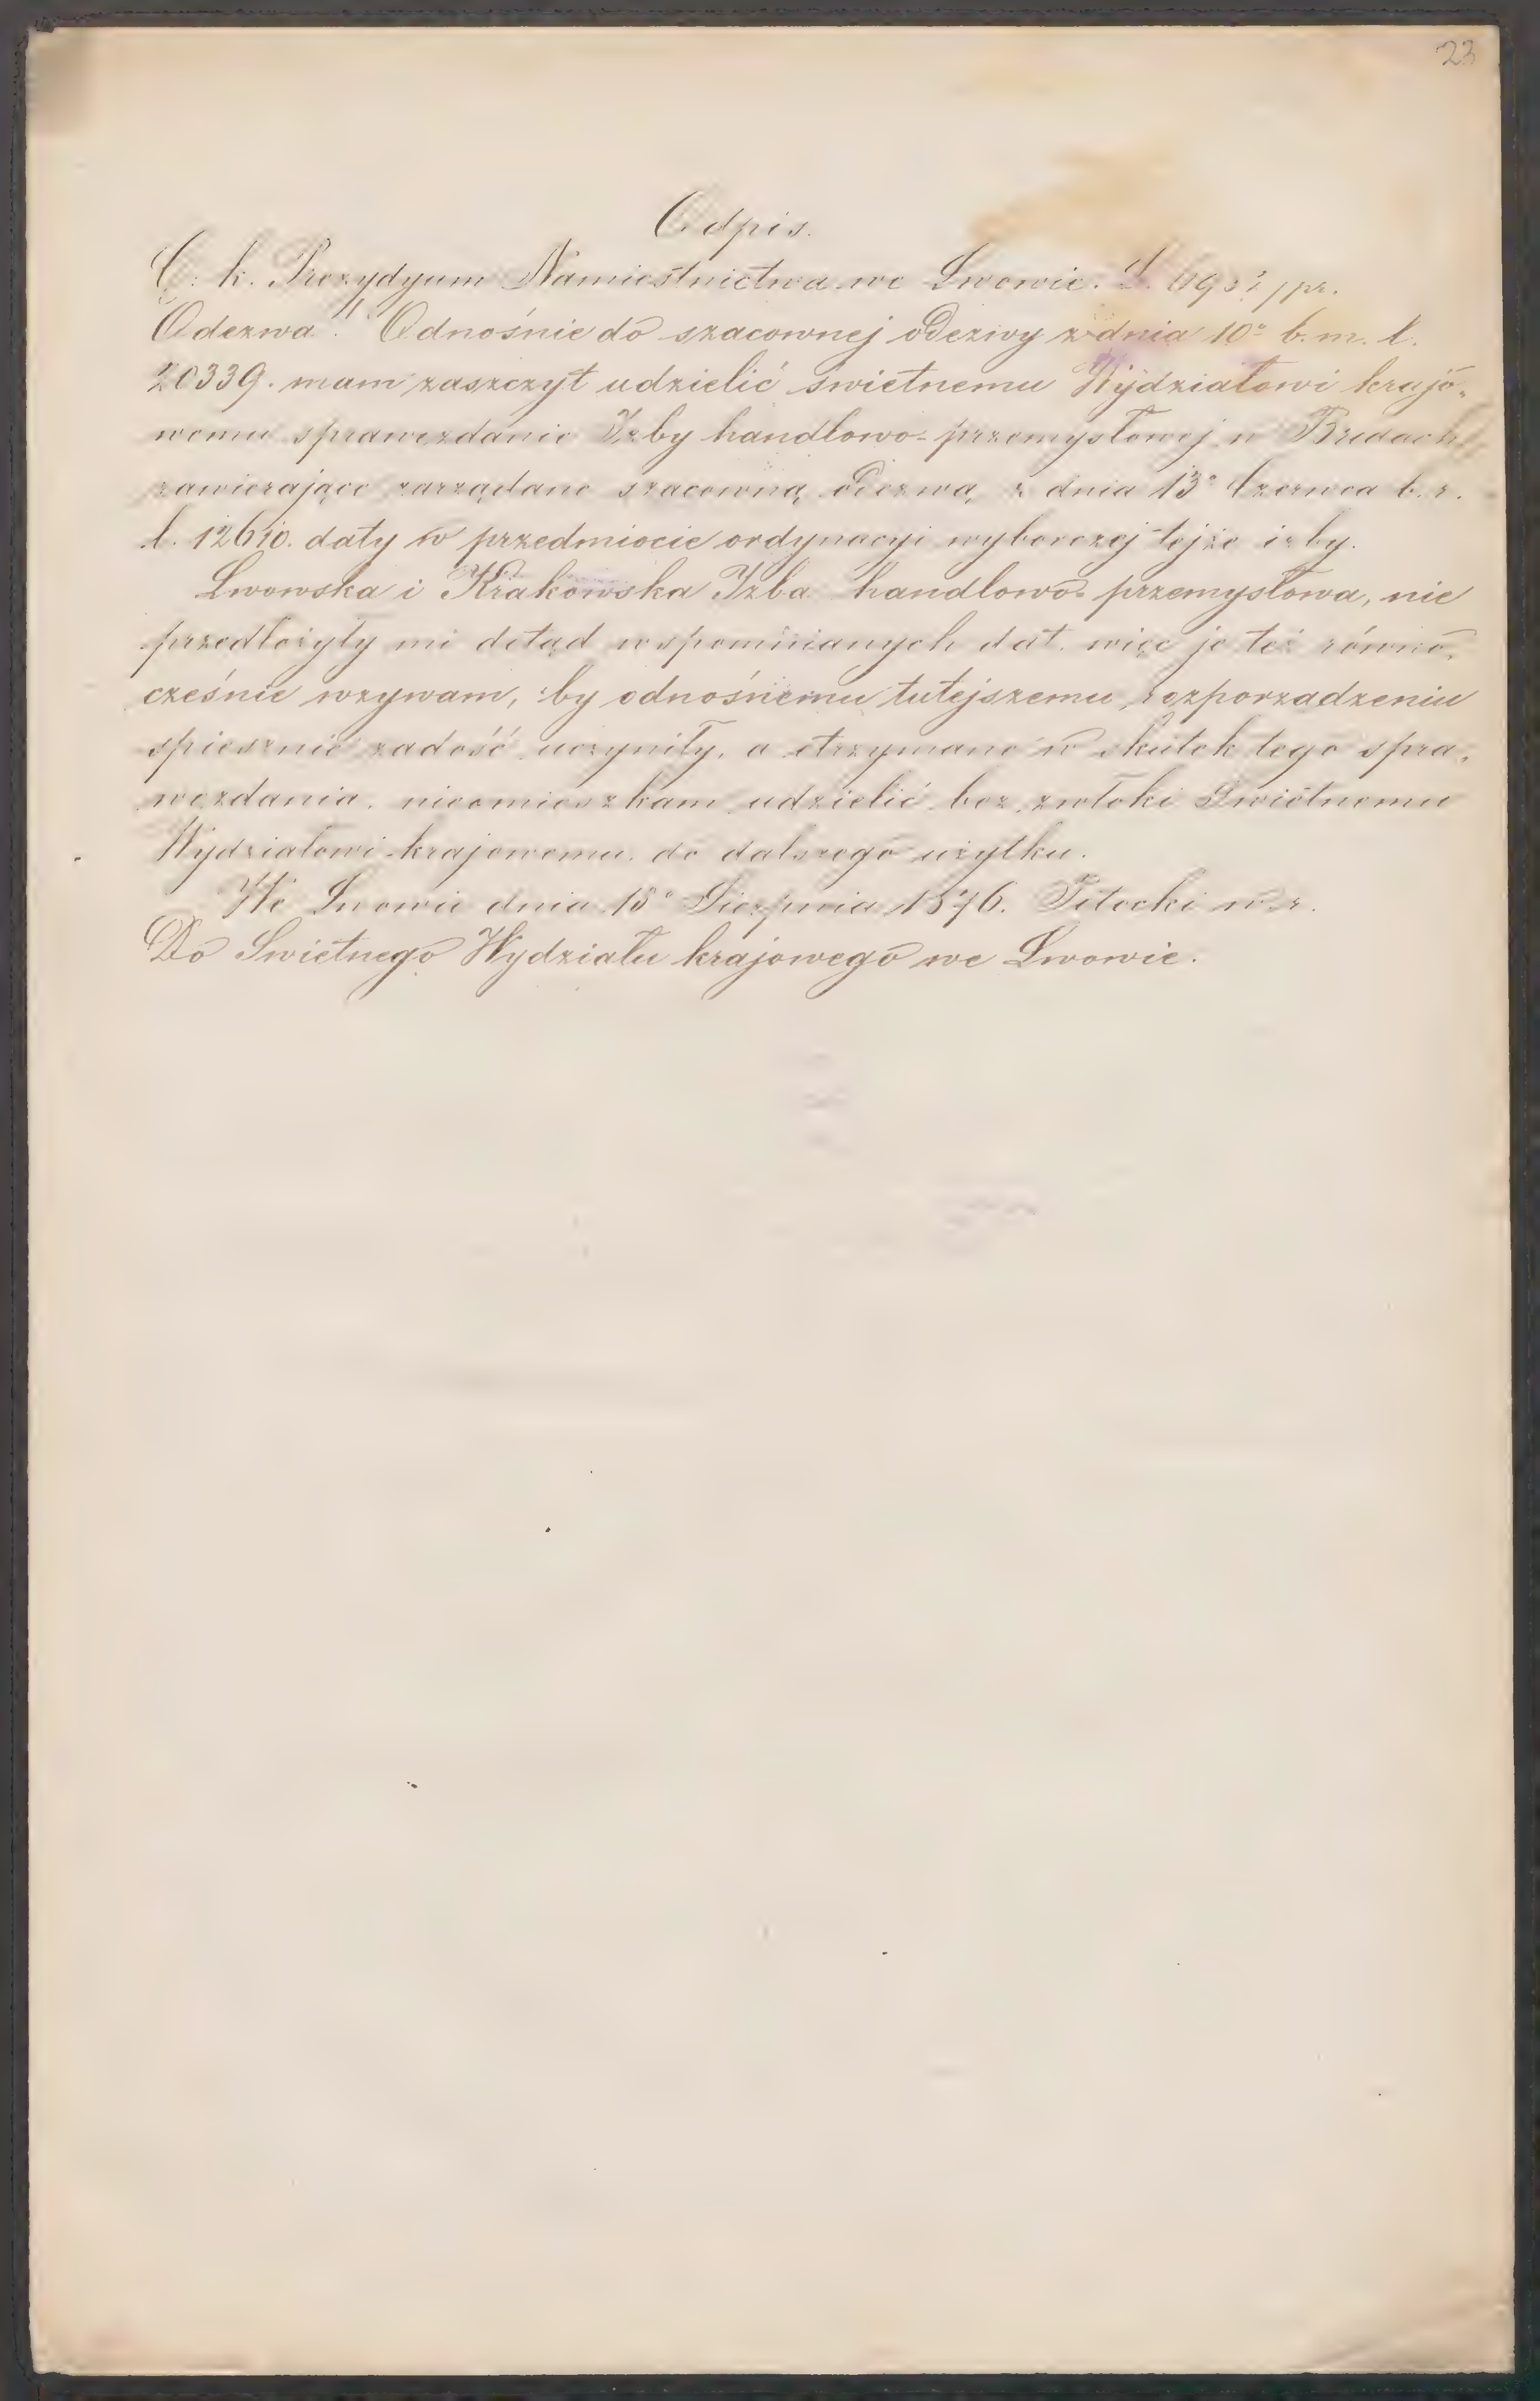 23
Odpis.
C. k. Prezydyum Namiestnictwa we Lwowie. L. /pr.
Odezwa! Odnośnie do szacownej odezwy z dnia 10º b. m. l.
20339. mam zaszczyt udzielić świetnemu Wydziałowi krajo-
wemu sprawozdanie Izby handlowo-przemysłowej w Brodach
zawierające zarządane szacowną odezwą z dnia 13º Czerwca b. r.
l. 12610. daty w przedmiocie ordynacyi wyborczej tejże izby.
Lwowska i Krakowska Izba handlowo-przemysłowa, nie
przedłożyły mi dotąd wspominianych dat. więc je też równo-
cześnie wzywam, by odnośnemu tutejszemu rozporządzeniu
spiesznie zadość uczyniły, a otrzymane w skutek tego spra-
wozdania, nieomieszkam udzielić bez zwłoki Świetnemu
Wydziałowi krajowemu do dalszego użytku.
We Lwowie dnia 18º Sierpnia 1876. Potocki w. r.
Do Swietnego Wydziału krajowego we Lwowie.